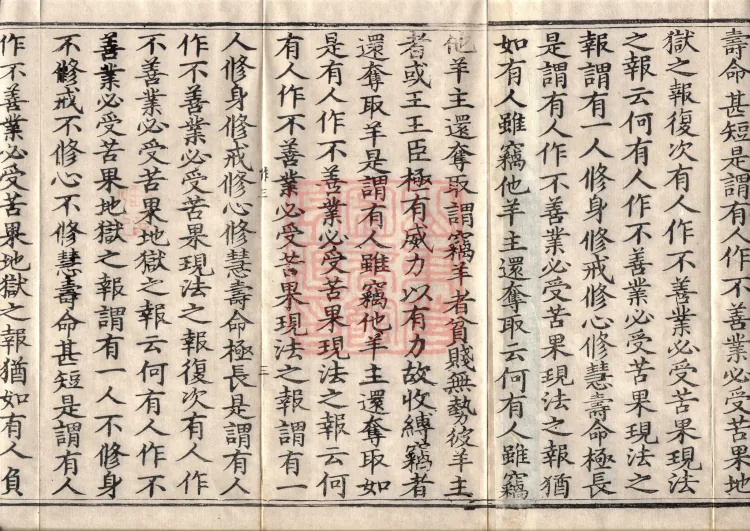 壽命甚短是謂有人作不善業必受苦果地
獄之報復次有人作不善業必受苦果現法
之報云何有人作不善業必受苦果現法之
報謂有一人修身修戒修心修慧壽命極長
是謂有人作不善業必受苦果現法之報猶
如有人雖竊他羊主還奪取云何有人雖竊
他羊主還奪取謂竊羊者貧賤無勢彼羊主
者或王王臣極有威力以有力故收縛竊者
還奪取羊是謂有人雖竊他羊主還奪取如
是有人作不善業必受苦果現法之報云何
有人作不善業必受苦果現法之報謂有一
作三 三
人修身修戒修心修慧壽命極長是謂有人
作不善業必受苦果現法之報復次有人作
不善業必受苦果地獄之報云何有人作不
善業必受苦果地獄之報謂有一人不修身
不修戒不修心不修慧壽命甚短是謂有人
作不善業必受苦果地獄之報猶如有人負